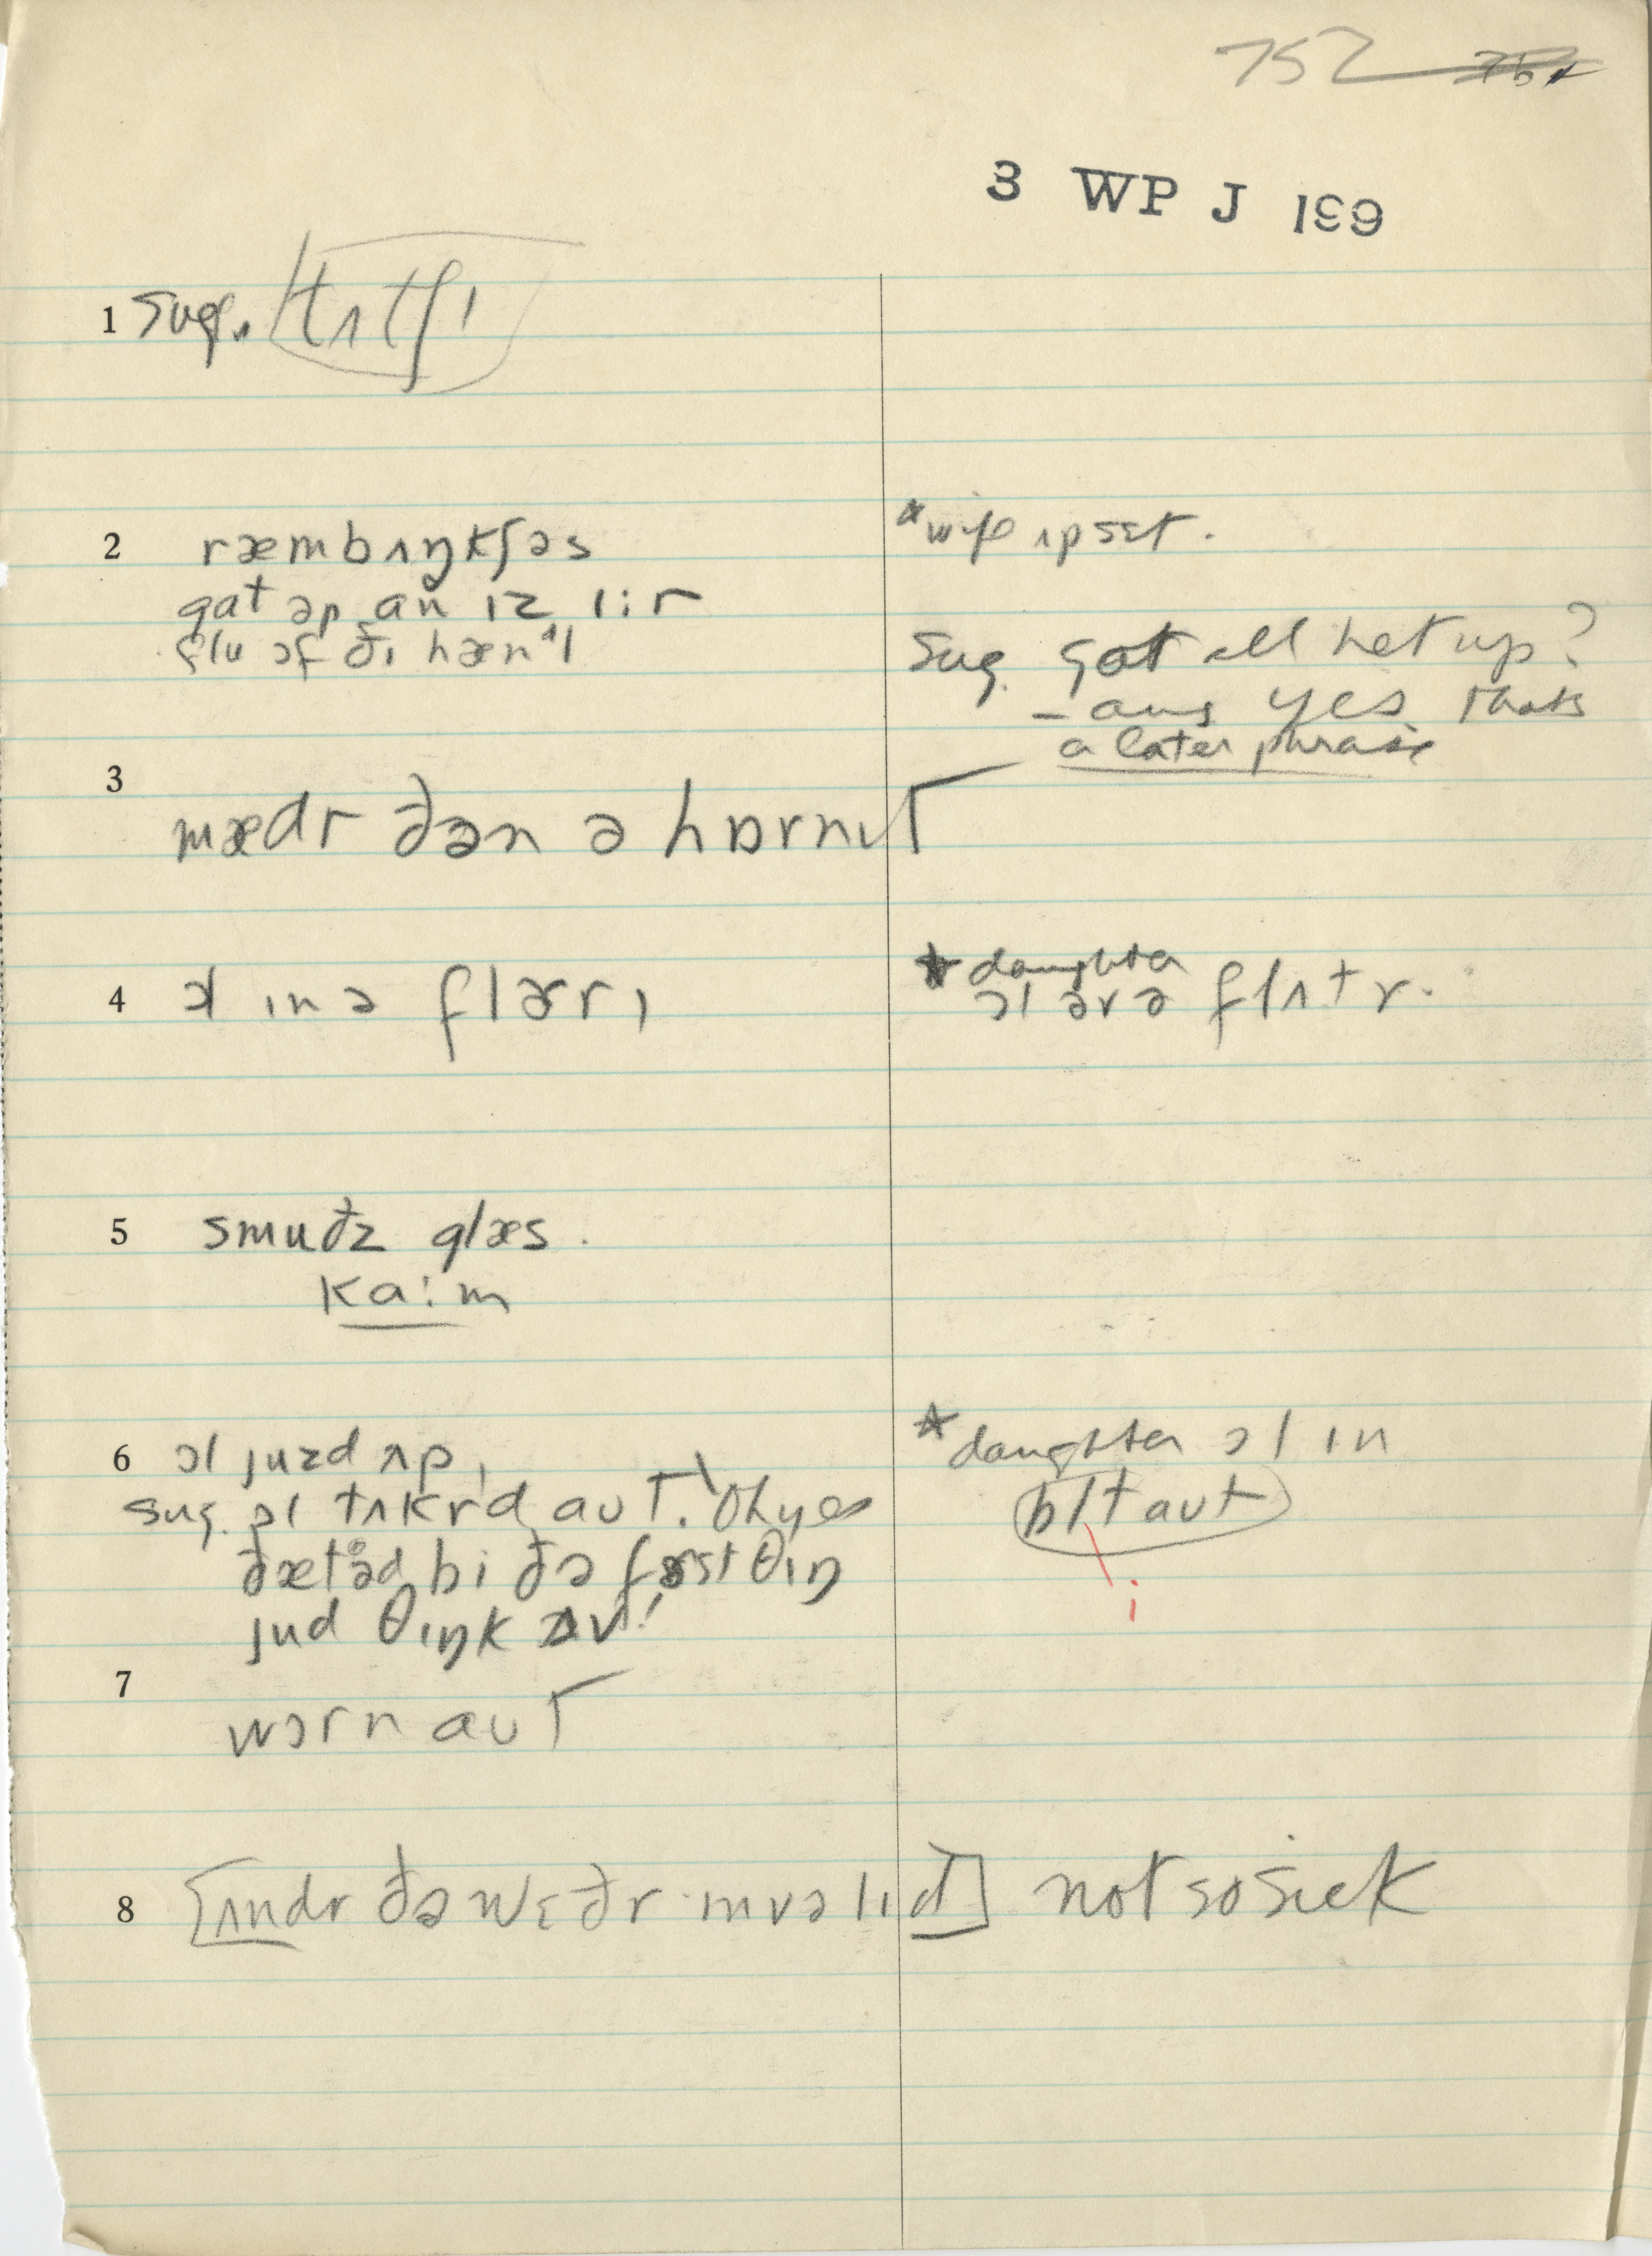 752
3 WP J 199
1 Sug. tʌtʃɪ
2 ræmbʌŋkʃəs
*wife ʌpsɛt.
gat əp an ɪz ɪ:r
flu ɔf ðɪ hænʼl
Sug. got all het up?
– ans yes thats
a later phrase
3
mædr ðən ə hɒrnɪt
4 ɔl ɪn ə flərrɪ
*daughter
ɔl əv ə flʌtr.
5 smuðz glæs.
ka:m
6 ɔl juzd ʌp,
*daughter ɔl ɪn
sug. ɔl tʌkrd aut. Oh yes
bɪt aut
i
ðætəd bi ðə fərst θɪŋ
jud θɪŋk ʌv!
7
wɔrn aut
8 [ʌndr ðə wɛðr ɪnvəlɪd] not so sick